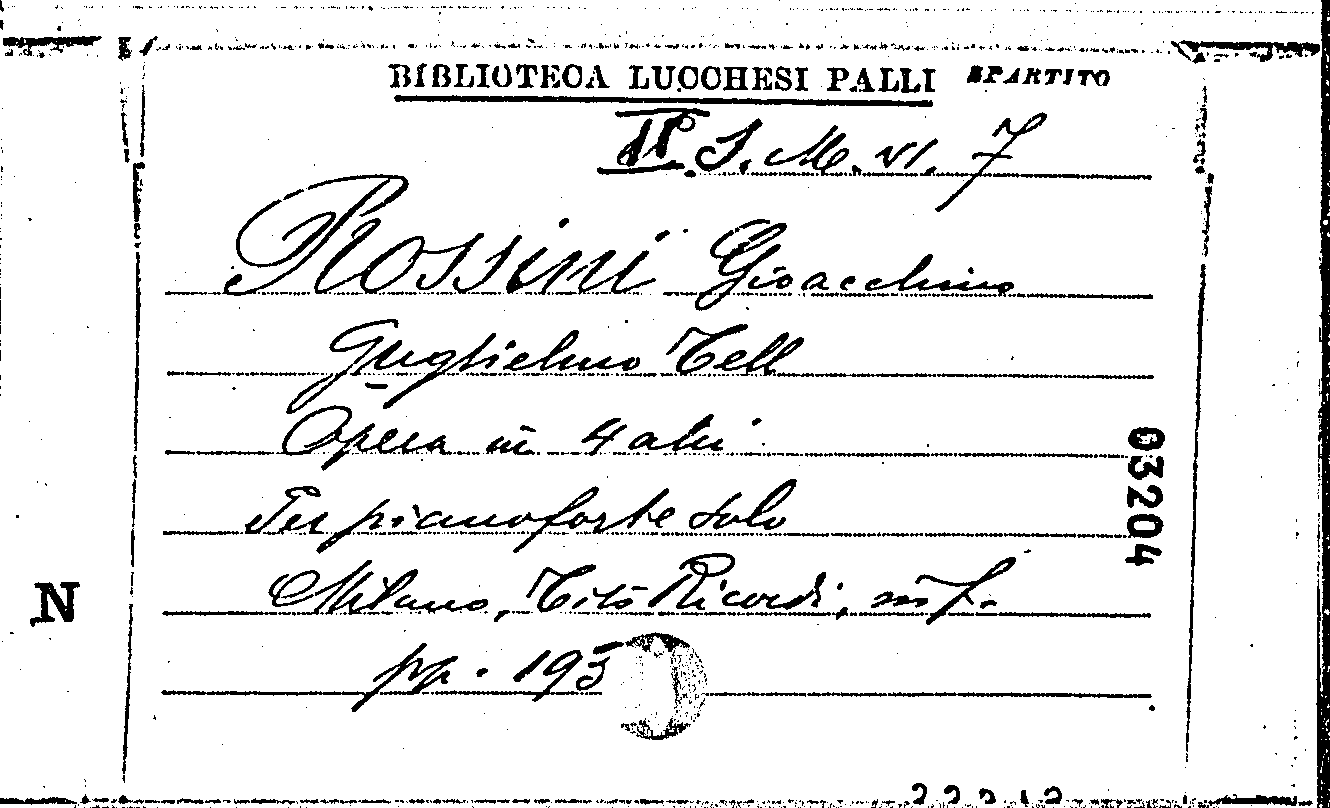 BIBLIOTECA LUCCHESI PALLI SPARTITO
II. S. M. VI. 7
Rossini Gioacchino
Guglielmo Tell
Opera in 4 atti
Per pianoforte solo
Milano, Tito Ricordi, in f.
pp. 193
03204
N